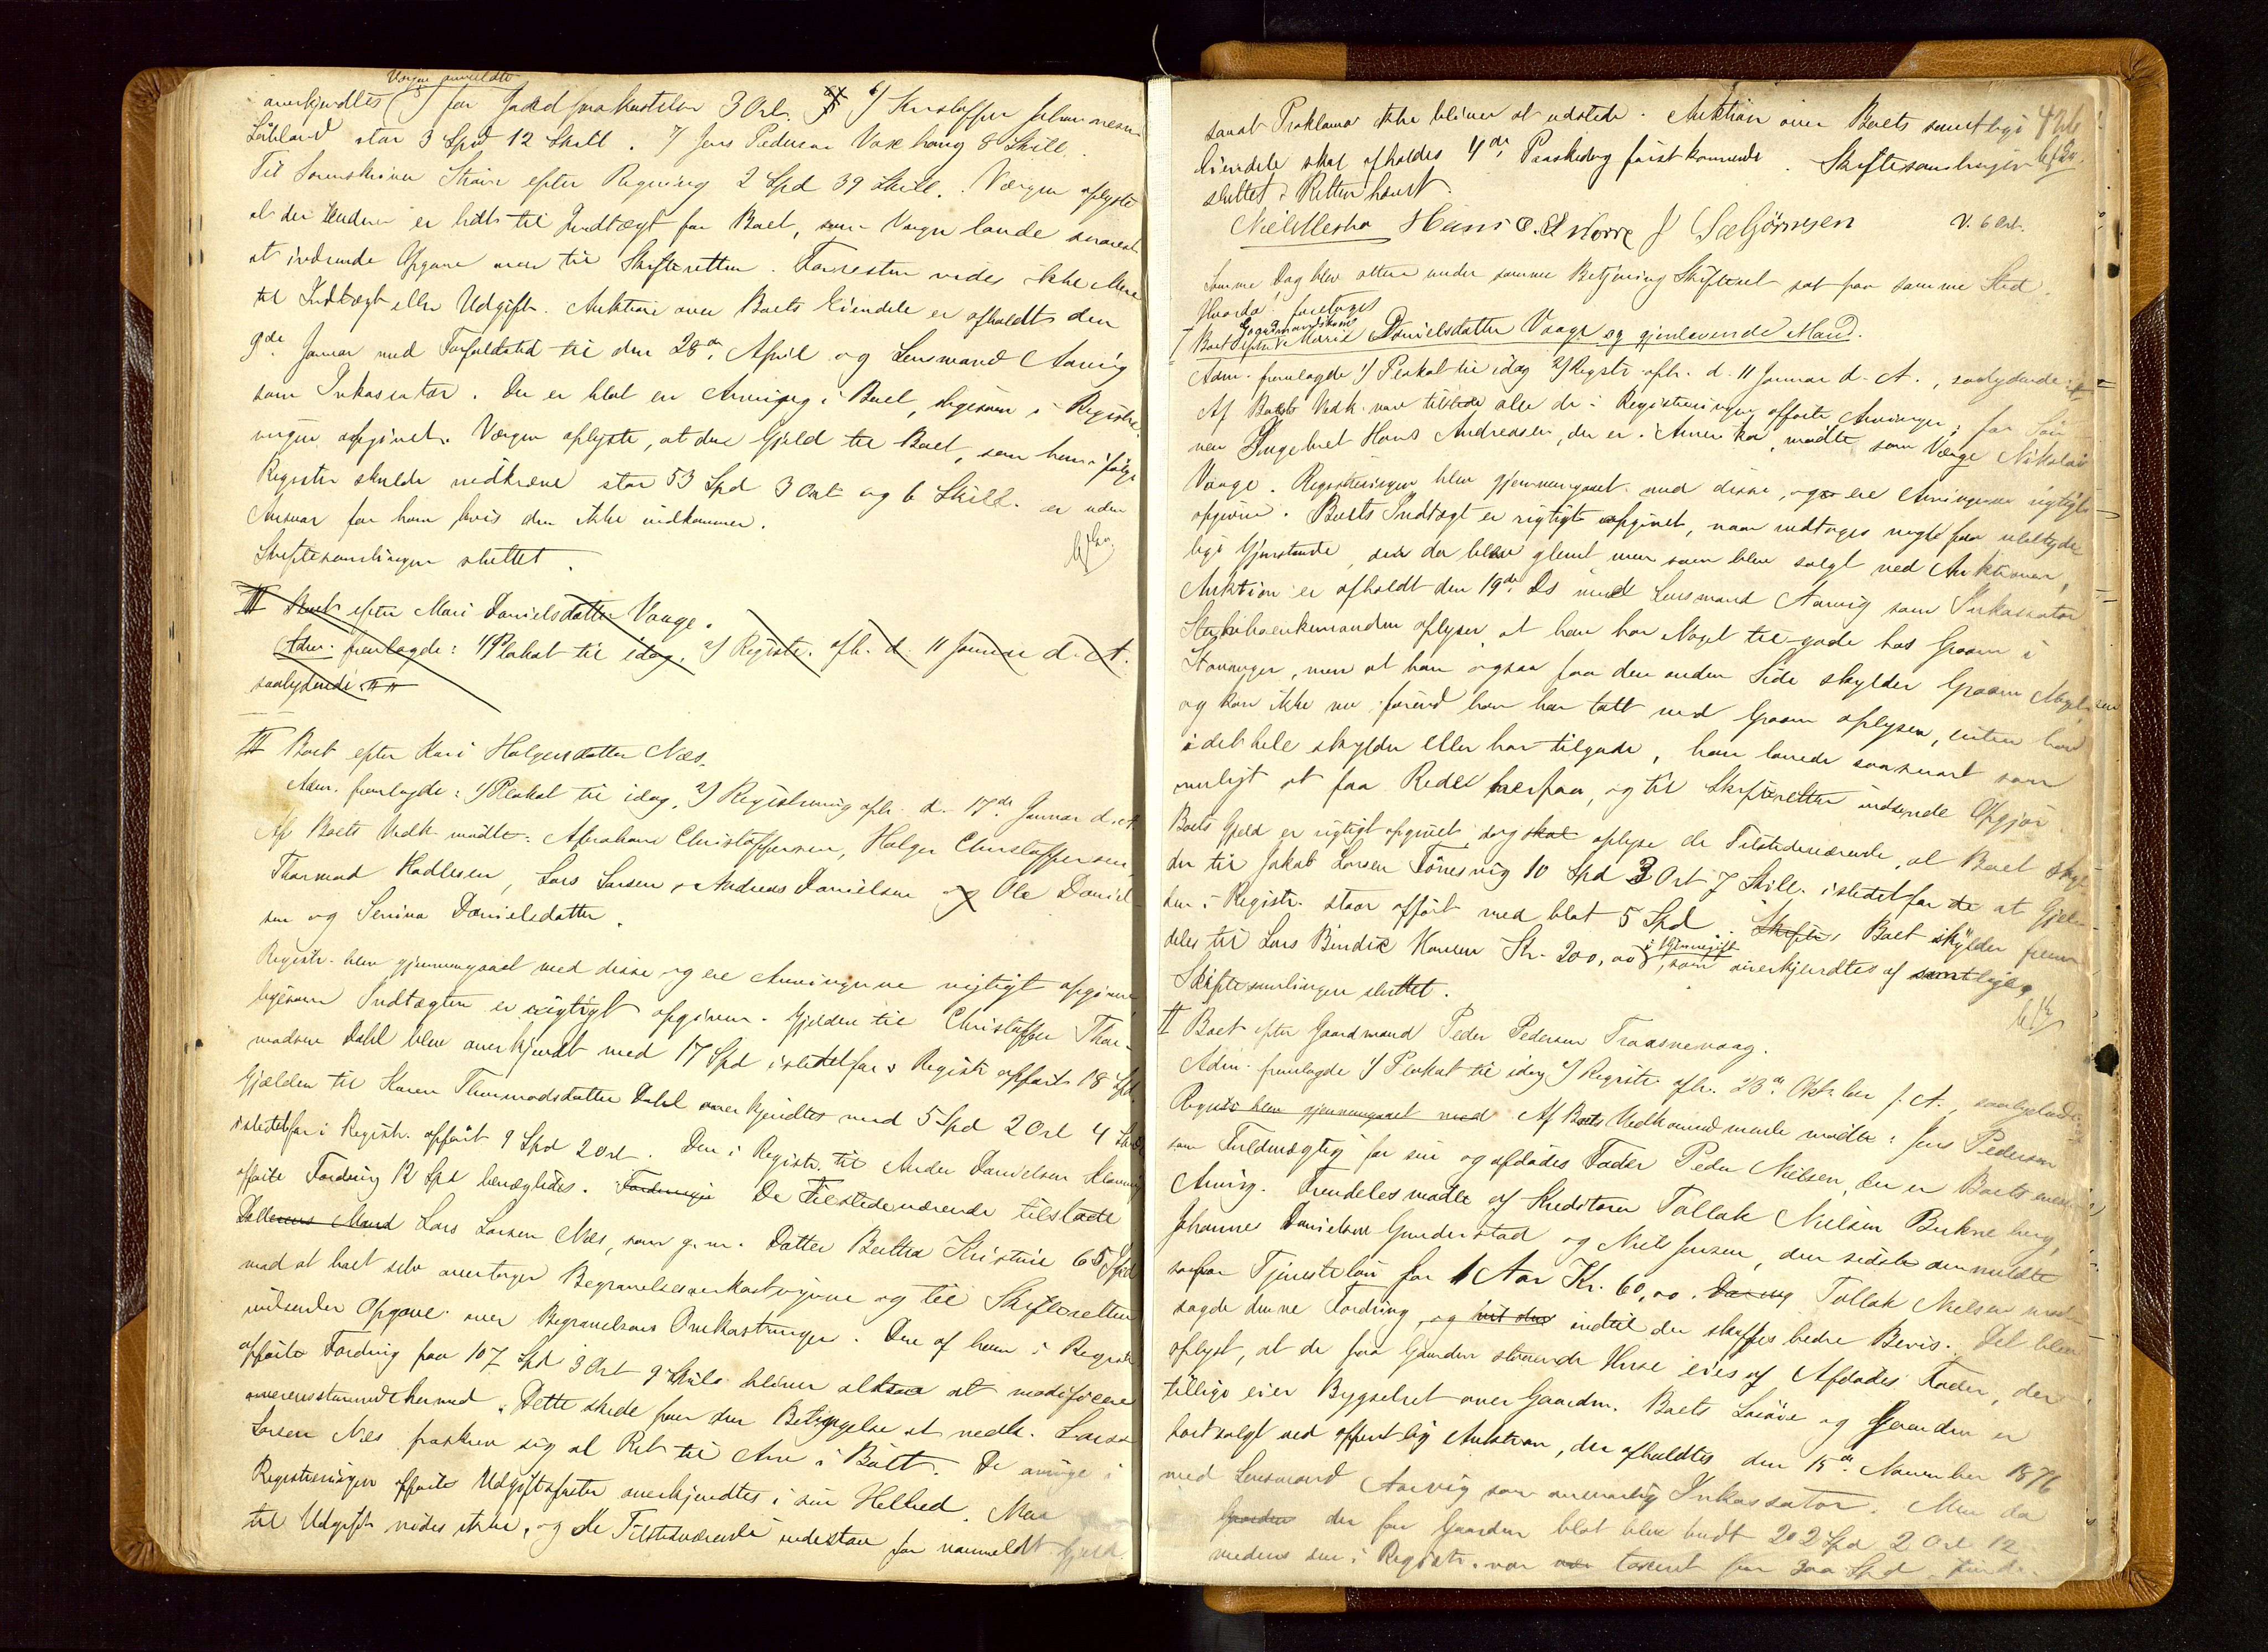 Værgen anmeldte
anerkjendtes for Jordpaakastelse 3 Ort. 6/ Kristoffer Johannesen
Lühland stor 3 Spd 12 Skill. 7/ Jens Pedersen Vaxhaug 8 Skill.
Til Sorenskriver Strøm efter Regning 2 Spd 39 Skill. Værgen oplyste
at der Endnu er lidt til Indtægt for Boet, som Værgen lovde snarest
at indsende Opgave over til Skifteretten. Forresten vides ikke Mere
til Indtægt eller Udgift. Auktion over Boets Eiendele er afholdt den
9de Januar med Forfaldstid til den 28de April og Lensmand Aarvig
som Inkassator. Der er blot en Arving i Boet, ligesom i Registre-
ringen opgivet. Værgen oplyste, at den Gjeld til Boet, som han ifølge
Registr. skulde nedkræve stor 53 Spd 3 Ort og 6 Skill. er uden
Ansvar for ham hvis den ikke indkommer.
Skiftesamlingen sluttet.
II Boet efter Mari Danielsdatter Vaage.
Adm. fremlagde: 1/ Plakat til idag, 2/ Registr. afh. d. 11 Januar d. A.
saalydende
II Boet efter Kari Holgersdatter Næs.
Adm. fremlagde: 1/ Plakat til idag, 2/ Registrering afh. d. 17de Januar d. A.
Af Boets Vedk. mødte: Abraham Christoffersen, Holger Christoffersen,
Thormod Kadlesen, Lars Larsen, Andreas Danielsen og Ole Daniel-
sen og Serina Danielsdatter.
Registr. blev gjennemgaaet med disse og ere Arvingerne rigtigt opgivne
ligesom Indtægten er rigtigt opgiven. Gjælden til Christoffer Thor-
modsen Dahl blev anerkjendt med 17 Spd istedetfor i Registr. opført 18 Spd.
Gjælden til Karen Thormodsdatter Dahl anerkjendtes med 5 Spd 2 Ort 4 Skill
istedetfor i Registr. opført 9 Spd 2 Ort. Den i Registr. til Anders Danielsen
opførte Fordring 12 Spd benægtedes. Fordringen De Tilstedeværende tilstode
Datterens Mand Lars Larsen Næs, som g. m. Datter Bertha Kristine 65 Spd
mod at boet selv overtager Begravelsesomkostningerne og til Skifteretten
indsender Opgave over Begravelsens Omkostninger. Den af ham i Registr.
opførte Fordring paa 107 Spd 3 Ort 9 Skill bliver altsaa at modificere
overensstemmende hermed. Dette skede paa den Betingelse at nedk. Lars
Larsen Næs fraskrev sig al Ret til Arv i Boet. De øvrige i
Registreringen opførte Udgiftsposter anerkjendtes i sin Helhed. Mere
til Udgift vides ikke, og de Tilstedeværende indestaar for uanmeldt Gjeld.
samt Proklama ikke bliver at udstede. Auktion over Boets samtlige
Eiendele skal afholdes 4de Paaskedag førstkommende. Skiftesamlingen
sluttet. Retten hævet.
Hans O. Snorre J. Sæbjørnsen
V. 6 Ort.
Samme Dag blev atter under samme Betjening Skifteret sat paa samme Sted
Hvorda foretoges
I Boet efter Gaardmandskone Marie Danielsdatter Vaage og gjenlevende Mand.
Adm. fremlagde 1/ Plakat til idag 2/ Registr. afh. d. 11 Januar d. A., saalydende:
Af Boets Vedk. var tilstede alle de i Registreringen opførte Arvinger; for Søn-
nen Ingebret Hans Andreasen, der er i Amerika, mødte som Værge Nikolai
Vaage. Registreringen blev gjennemgaaet med disse, og ere Arvingerne rigtigt
opgivne. Boets Indtægt er rigtigt opgivet, naar undtages nogle faa ubetyde-
lige Gjenstande, som der blev glemt, men som blev solgt ved Auktionen,
Auktion er afholdt den 19de Ds med Lensmand Aarvig som Inkassator
Sterbeboenkemanden oplyser at han har Noget tilgode hos Graarn i
Stavanger, men at han ogsaa paa den anden Side skylder Graarn
og kan ikke nu førend han har talt med Graarn oplyse, enten han
i det hele skylder eller har tilgode, han lovede saasnart som
muligt at faa Rede herpaa, og til Skifteretten indsende Opgjør.
Boets Gjeld er rigtigt opgivet, dog skal oplyse de Tilstedeværende, at Boet skyl-
der til Jakob Larsen Tønesvig 10 Spd 3 Ort 7 Skill. istedetfor de at Gjel-
den i Registr. staar opført med blot 5 Spd. Skifte Boet skylder frem-
deles til Lars Bendix Hansen Kr. 200,00, som anerkjendtes af samtlige.
Skiftesamlingen sluttet.
II Boet efter Gaardmand Peder Pedersen Traasnevaag.
Adm. fremlagde 1/ Plakat til idag 2/ Registr. afh. 23de Oktober f. A., saalydende
Registr. blev gjennemgaaet med Af Boets Vedkommende mødte: Jens Pedersen
som Fuldmægtig for sin og afdødes Fader Peder Nielsen, der er Boets eneste
Arving. Fremdeles mødte af Kreditorer Tollak Nielsen Bukneberg,
Johannes Danielsen Gunderstad og Niels Jensen, den sidste anmeldte
saasom Tjenesteløn for 1 Aar Kr. 60,00. Tollak Nielsen mod-
sagde denne Fordring, og indtil der skaffes bedre Bevis. Det blev
oplyst, at de paa Gaarden staaende Huse eies af Afdødes Fader, der
tillige eier Bygselret over Gaarden. Boets Løsøre og Gaarden er
bortsolgt ved offentlig Auktion, der afholdtes den 15de November 1876
med Lensmand Aarvig som ansvarlig Inkassator. Men da
Gaarden der for Gaarden blot blev budt 202 Spd 2 Ort 12
medens den i Registr. var taxeret for 300 Spd